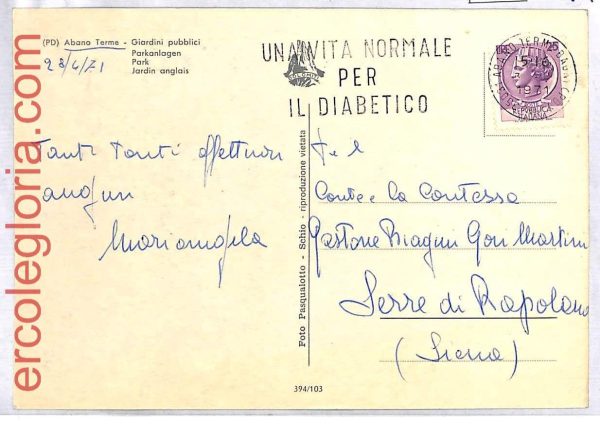 (PD) Abano Terme - Giardini pubblici
Parkanlagen
Park
Jardin anglais
23/4/71
UNA VITA NORMALE
PER
IL DIABETICO
15-16
1971
Tanti tanti affettuosi
auguri
Mariangela
Conte e la Contessa
Gastone Biagini Gori Martini
Serre di Rapolano
(Siena)
Foto Pasqualotto - Schio - riproduzione vietata
394/103
ercolegloria.com